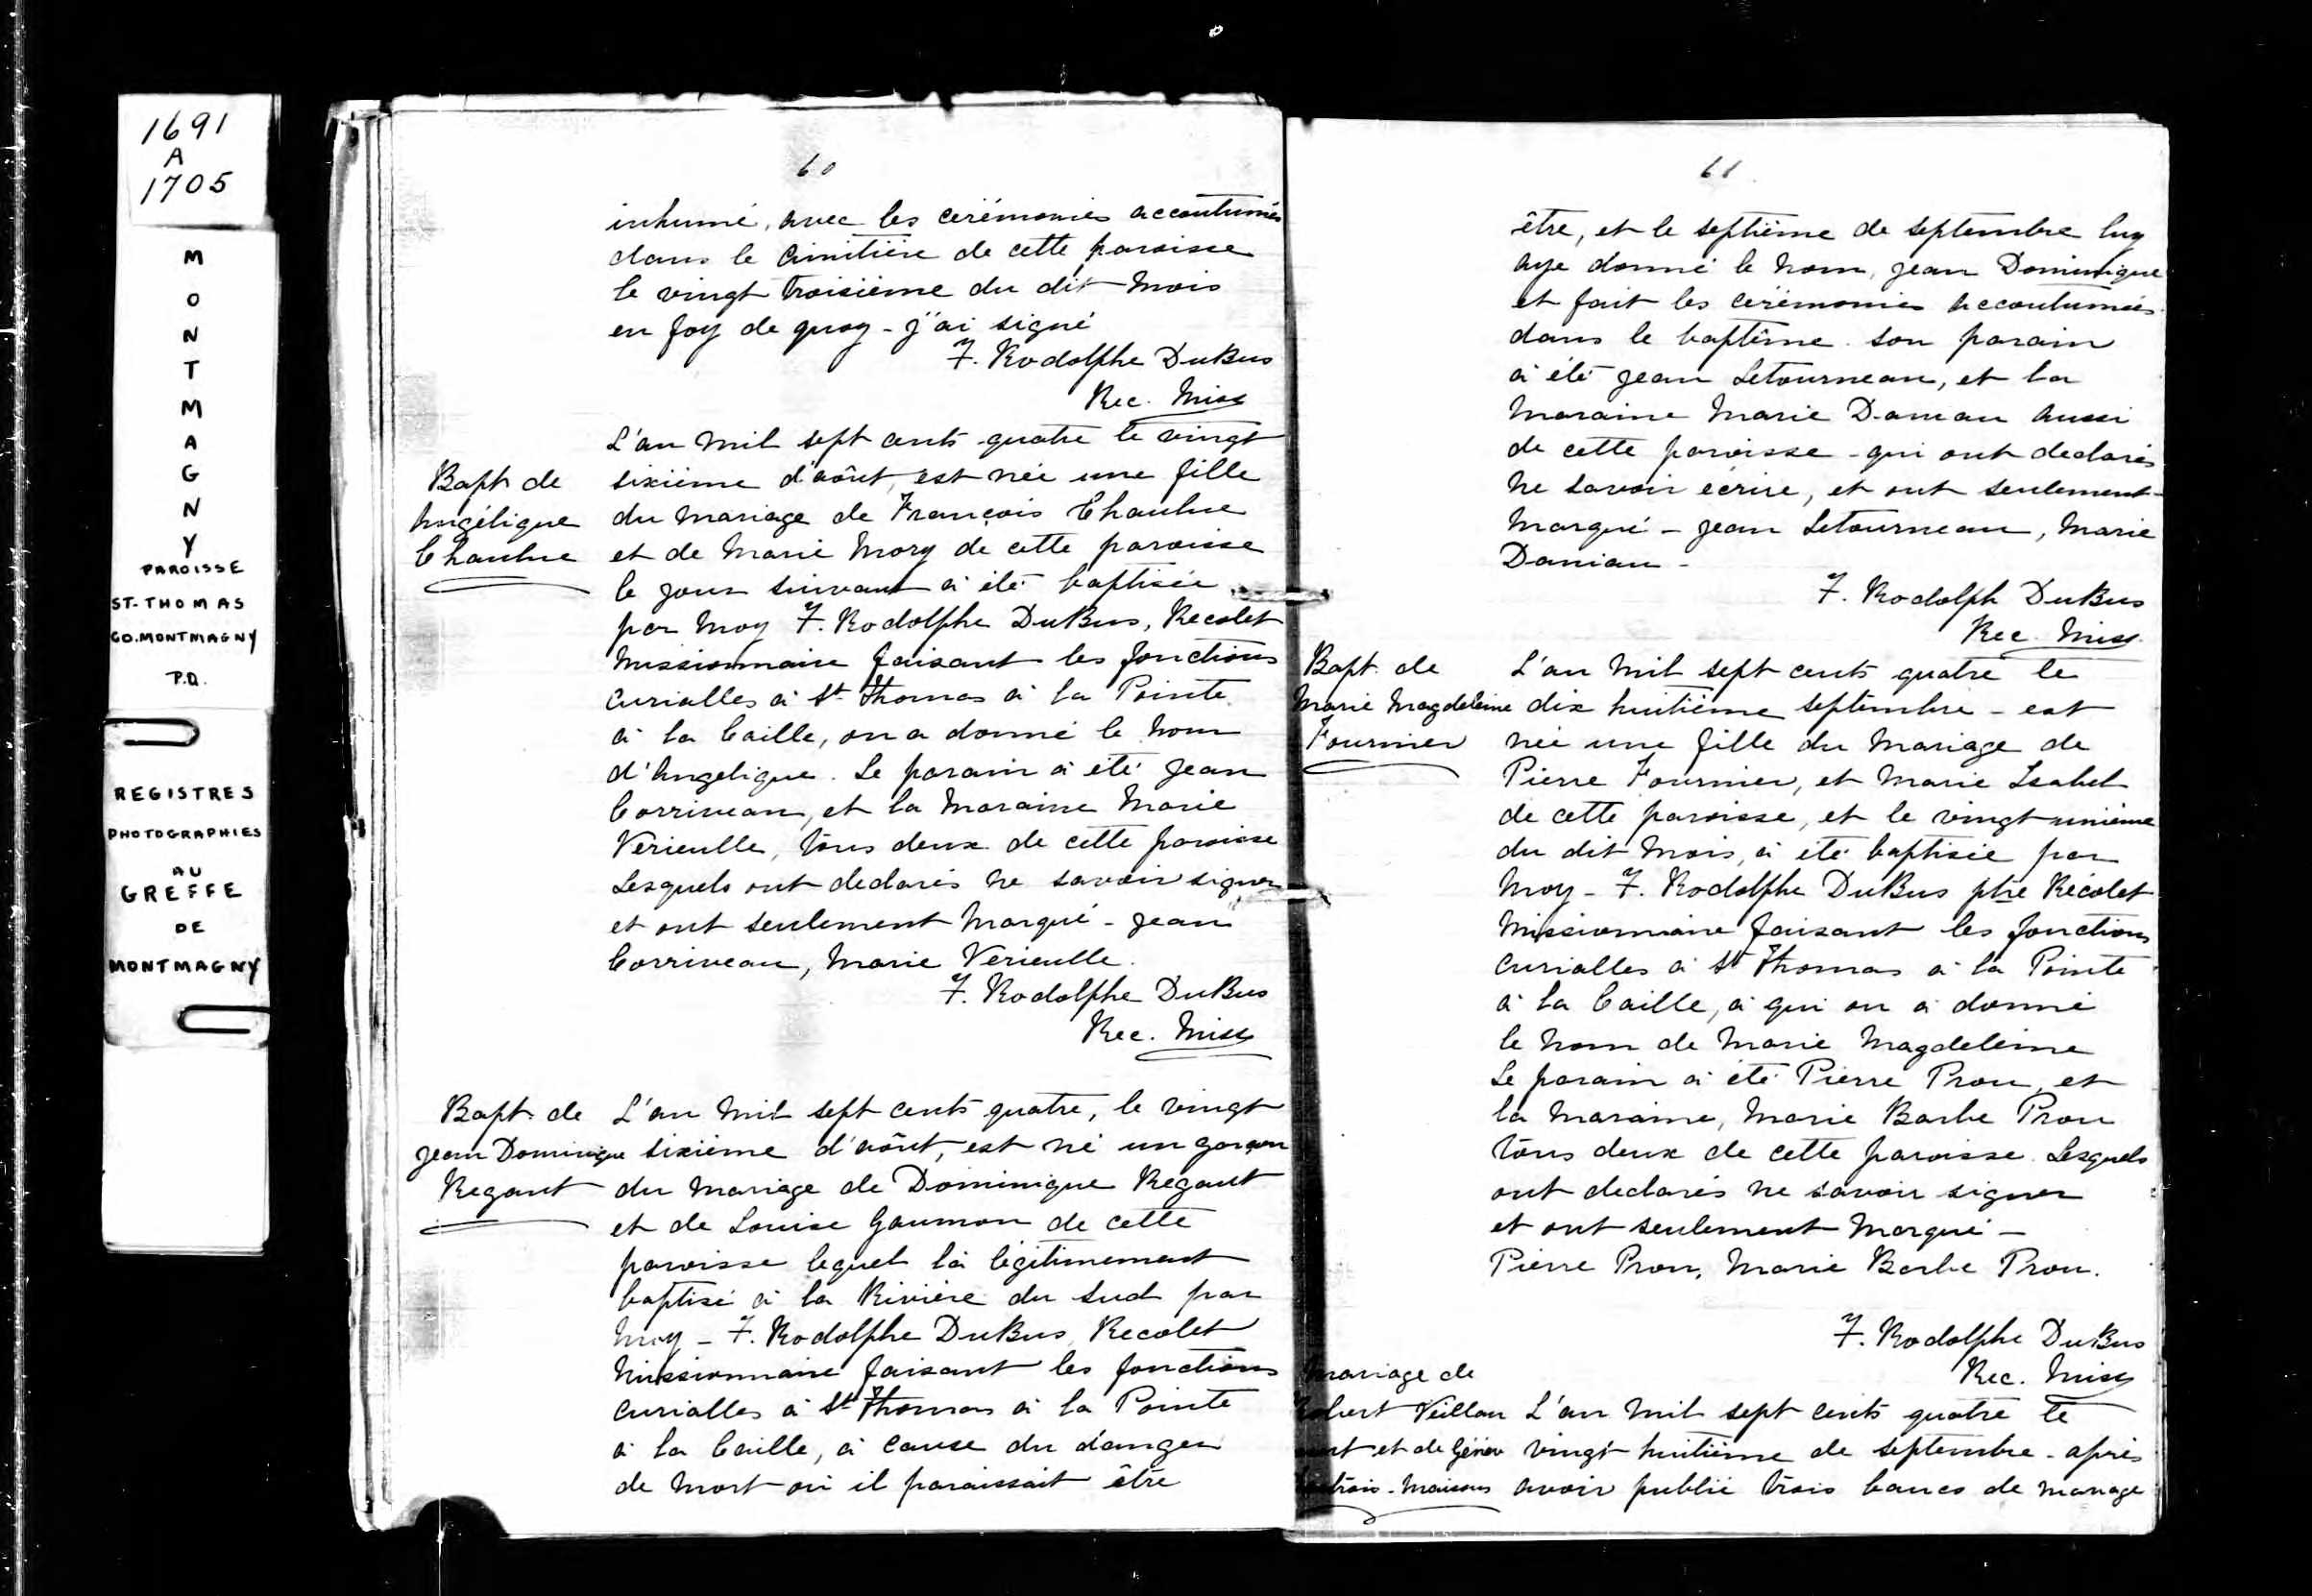 1691
A
1705
MONTMAGNY
PAROISSE
ST-THOMAS
CO. MONTMAGNY
P.Q.
REGISTRES
PHOTOGRAPHIES
AU
GREFFE
DE
MONTMAGNY
60
inhumé, avec les cerémonies accoutumés
dans le cimitière de cette paroisse
le vingt troisième du dit mois
en foy de quoy - j'ai signé
F. Rodolphe DuBus
Rec. Miss
Bapt. de
Angélique
Chaulue
L'an mil sept cents quatre le vingt
sixième d'août, est née une fille
du mariage de François Chaulue
et de Marie Mory de cette paroisse
le jour suivant à été baptisée
par moy F. Rodolphe DuBus, Recolet
missionnaire faisant les fonctions
curialles à St Thomas à la Pointe
à la Caille, on a donné le nom
d'Angelique. Le parain à été Jean
Corriveau, et la maraine Marie
Verieulle, tous deux de cette paroisse
Lesquels ont declarés ne savoir signer
et ont seulement marqué - Jean
Corriveau, Marie Verieulle.
F. Rodolphe DuBus
Rec. Miss
Bapt. de
Jean Dominique
Regaut
L'an mil sept cents quatre, le vingt
sixième d'août, est né un garçon
du mariage de Dominique Regaut
et de Louise Gaumon de cette
paroisse lequel là légitimement
baptisé à la Rivière du Sud par
moy - F. Rodolphe DuBus, Recolet
missionnaire faisant les fonctions
curialles à St Thomas à la Pointe
à la Caille, à cause du danger
de mort où il paraissait être
61
être, et le septième de septembre luy
aye donné le nom, Jean Dominique
et fait les cerémonies accoutumées
dans le baptême. son parain
à été Jean Letourneau, et la
maraine Marie Damau aussi
de cette paroisse - qui ont declarés
ne savoir écrire, et ont seulement
marqué - Jean Letourneau, Marie
Danian -
F. Rodolph DuBus
Rec. Miss.
Bapt. de
Marie Magdeleine
Fournier
L'an mil sept cents quatre le
dix huitième septembre - est
née une fille du mariage de
Pierre Fournier, et Marie Isabel
de cette paroisse, et le vingt unième
du dit mois, à été baptisée par
moy - F. Rodolphe DuBus ptre Récolet
Missionnaire faisant les fonctions
curialles à St Thomas à la Pointe
à la Caille, à qui on à donné
le nom de Marie Magdeleine
Le parain à été Pierre Prou, et
la maraine, Marie Barbe Prou
tous deux de cette paroisse. Lesquels
ont declarés ne savoir signer
et ont seulement marqué -
Pierre Prou, Marie Barbe Prou.
F. Rodolphe DuBus
Rec. Miss
Mariage de
Veillan
et de
trois-Maisons
L'an mil sept cents quatre le
vingt huitième de septembre - après
avoir publié trois bancs de mariage